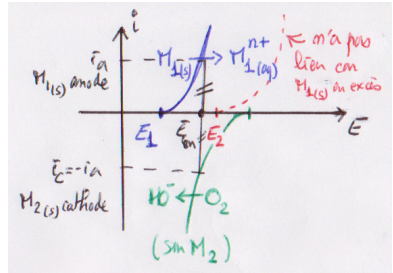 i
ia
M1(s) anode
M1(s) → M1(aq)^n+
n'a pas
lieu car
M1(s) en excès
E1
Em
E2
E
ic = -ia
M2(s) cathode
HO⁻ ← O2
(sur M2)